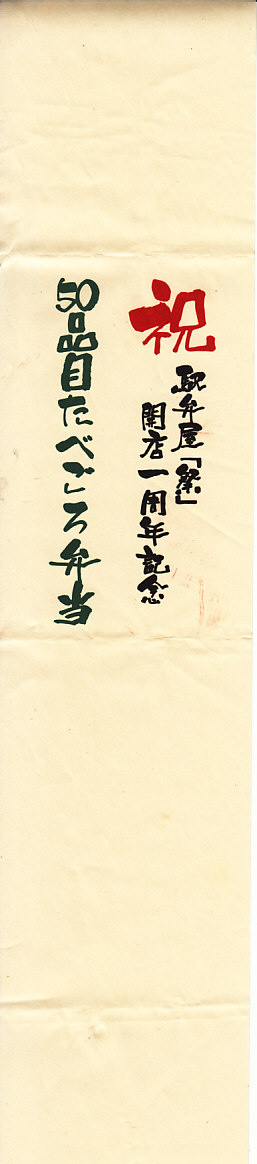 祝
駅弁屋「祭」
開店一周年記念
50品目たべごろ弁当